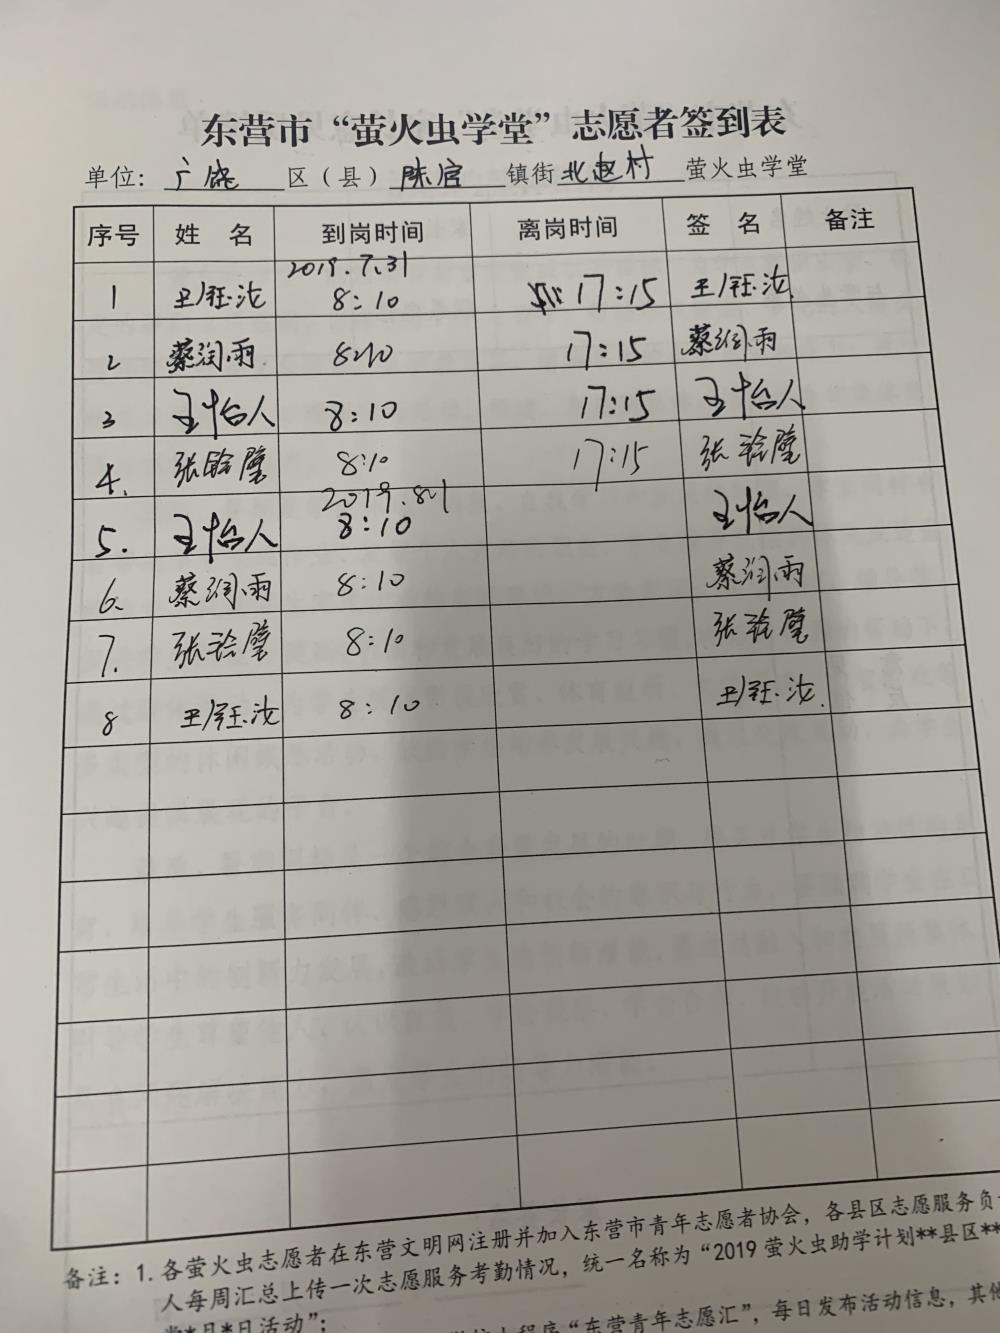 东营市“萤火虫学堂”志愿者签到表
单位：广饶 区（县）陈官 镇街 北赵村 萤火虫学堂
序号 姓 名 到岗时间 离岗时间 签 名 备注
2019.7.31
1 王钰汝 8:10 17:15 王钰汝
2 蔡润雨 8:10 17:15 蔡润雨
3 王怡人 8:10 17:15 王怡人
4. 张晗璧 8:10 17:15 张晗璧
2019.8.1
5. 王怡人 8:10 王怡人
6. 蔡润雨 8:10 蔡润雨
7. 张晗璧 8:10 张晗璧
8 王钰汝 8:10 王钰汝
备注：1.各萤火虫志愿者在东营文明网注册并加入东营市青年志愿者协会，各县区志愿服务负
人每周汇总上传一次志愿服务考勤情况，统一名称为“2019萤火虫助学计划**县区**
*月*日活动”；
小程序“东营青年志愿汇”，每日发布活动信息，其他